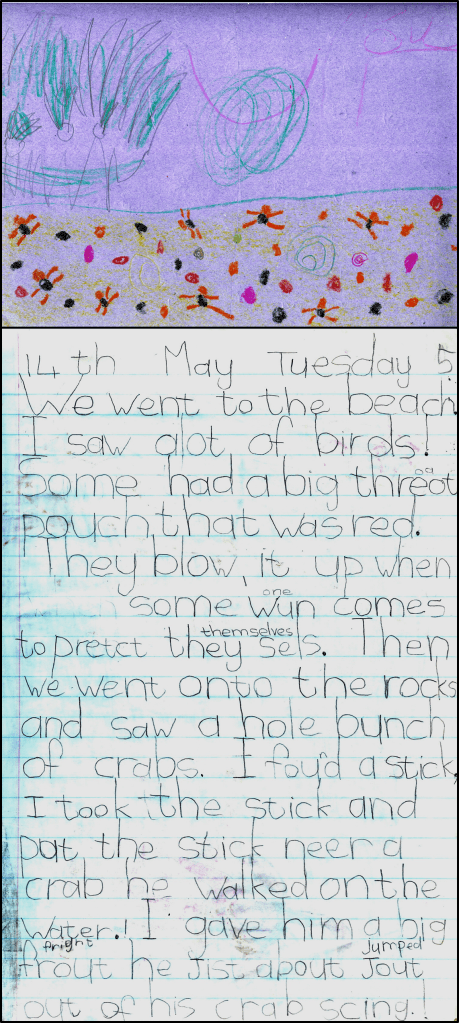 14 th May Tuesday 5
We went to the beach
I saw alot of birds!
oa
Some had a big threot
pouch that was red.
They blow it up when
one
some wun comes
themselves
to pretct they sels. Then
we went onto the rocks
and saw a hole bunch
of crabs. I fou'd a stick,
I took the stick and
pat the stick neer a
crab he walked on the
water.! I gave him a big
fright jumped
frout he Jist about Jout
out of his crab scing.!